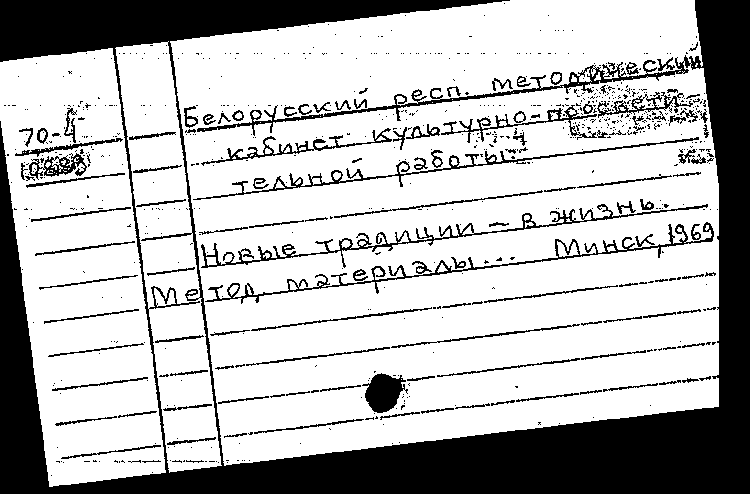 Белорусский респ. методический
70-4
кабинет культурно-просвети-
тельной работы.
Новые традиции - в жизнь.
Метод. материалы... Минск, 1969.